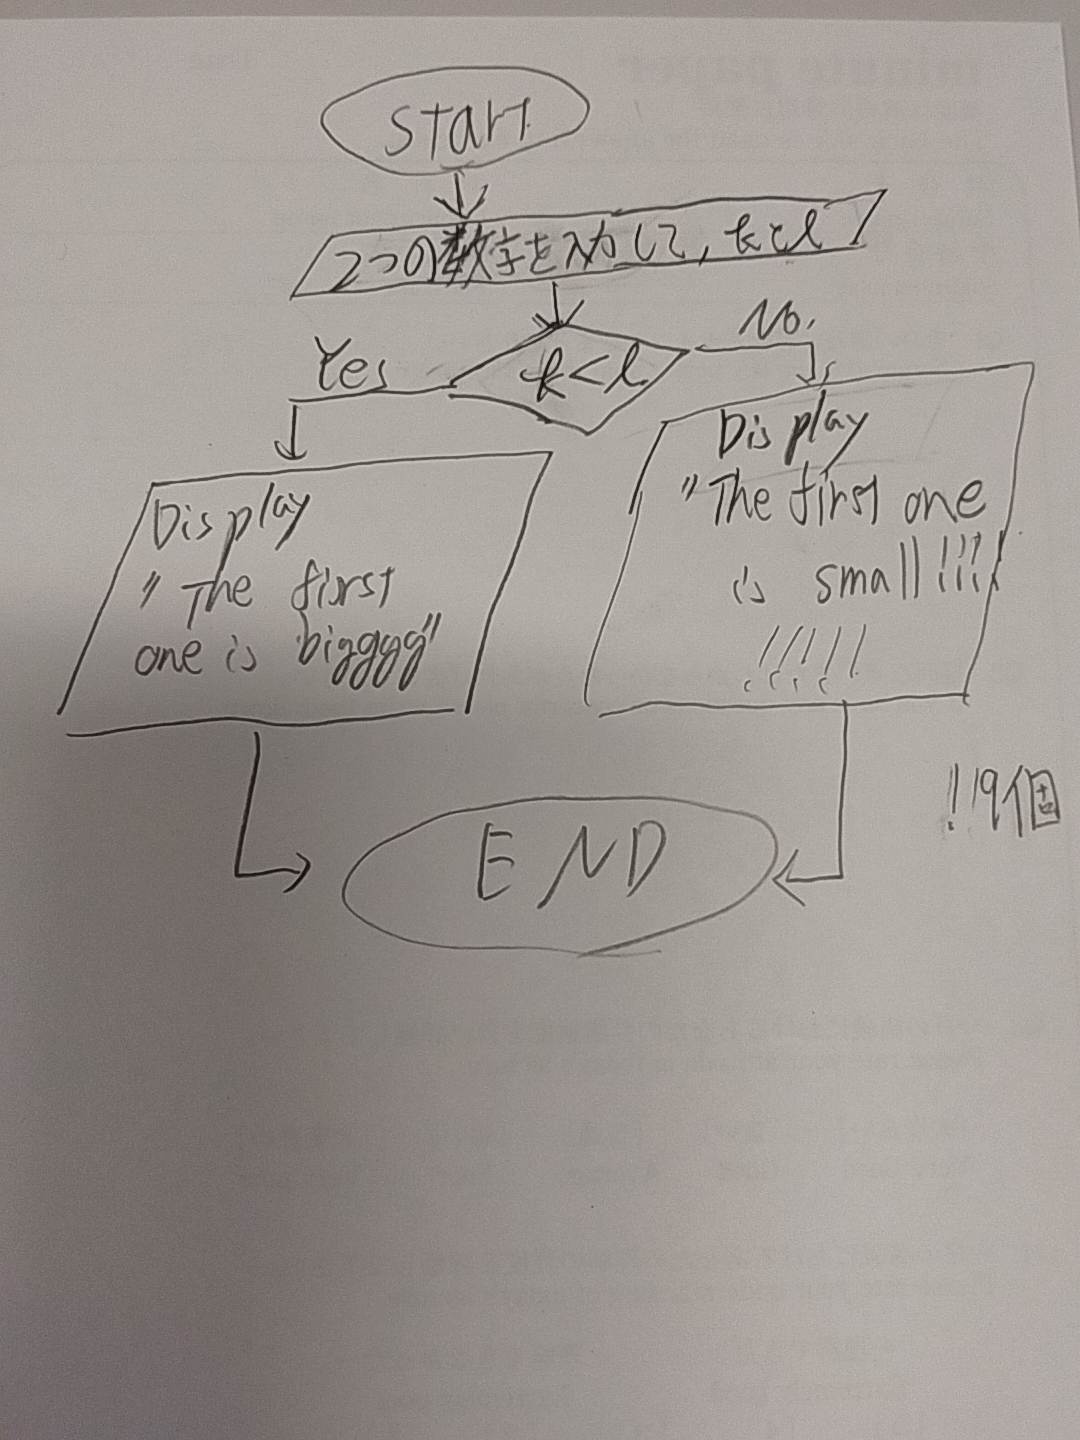 start
2つの数字を入力して, kとl
k<l
Yes
No.
Display
"The first
one is bigggg"
Display
"The first one
is small!!!!
!!!!!
!19個
END